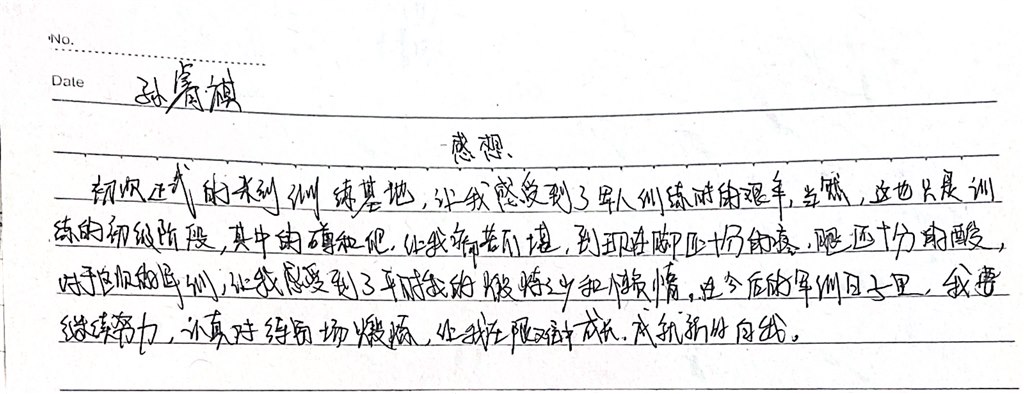 No.
Date 孙睿祺
感想
初次正式的来到训练基地,让我感受到了军人训练时的艰辛,当然,这也只是训
练的初级阶段,其中的蹲和爬,让我痛苦不堪,到现在脚还十分的疼,腿还十分的酸,
对于这次的军训,让我感受到了平时我的锻炼少和懒惰,在今后的军训日子里,我要
继续努力,认真对待每场锻炼,让我在艰难中成长,成就新的自我。